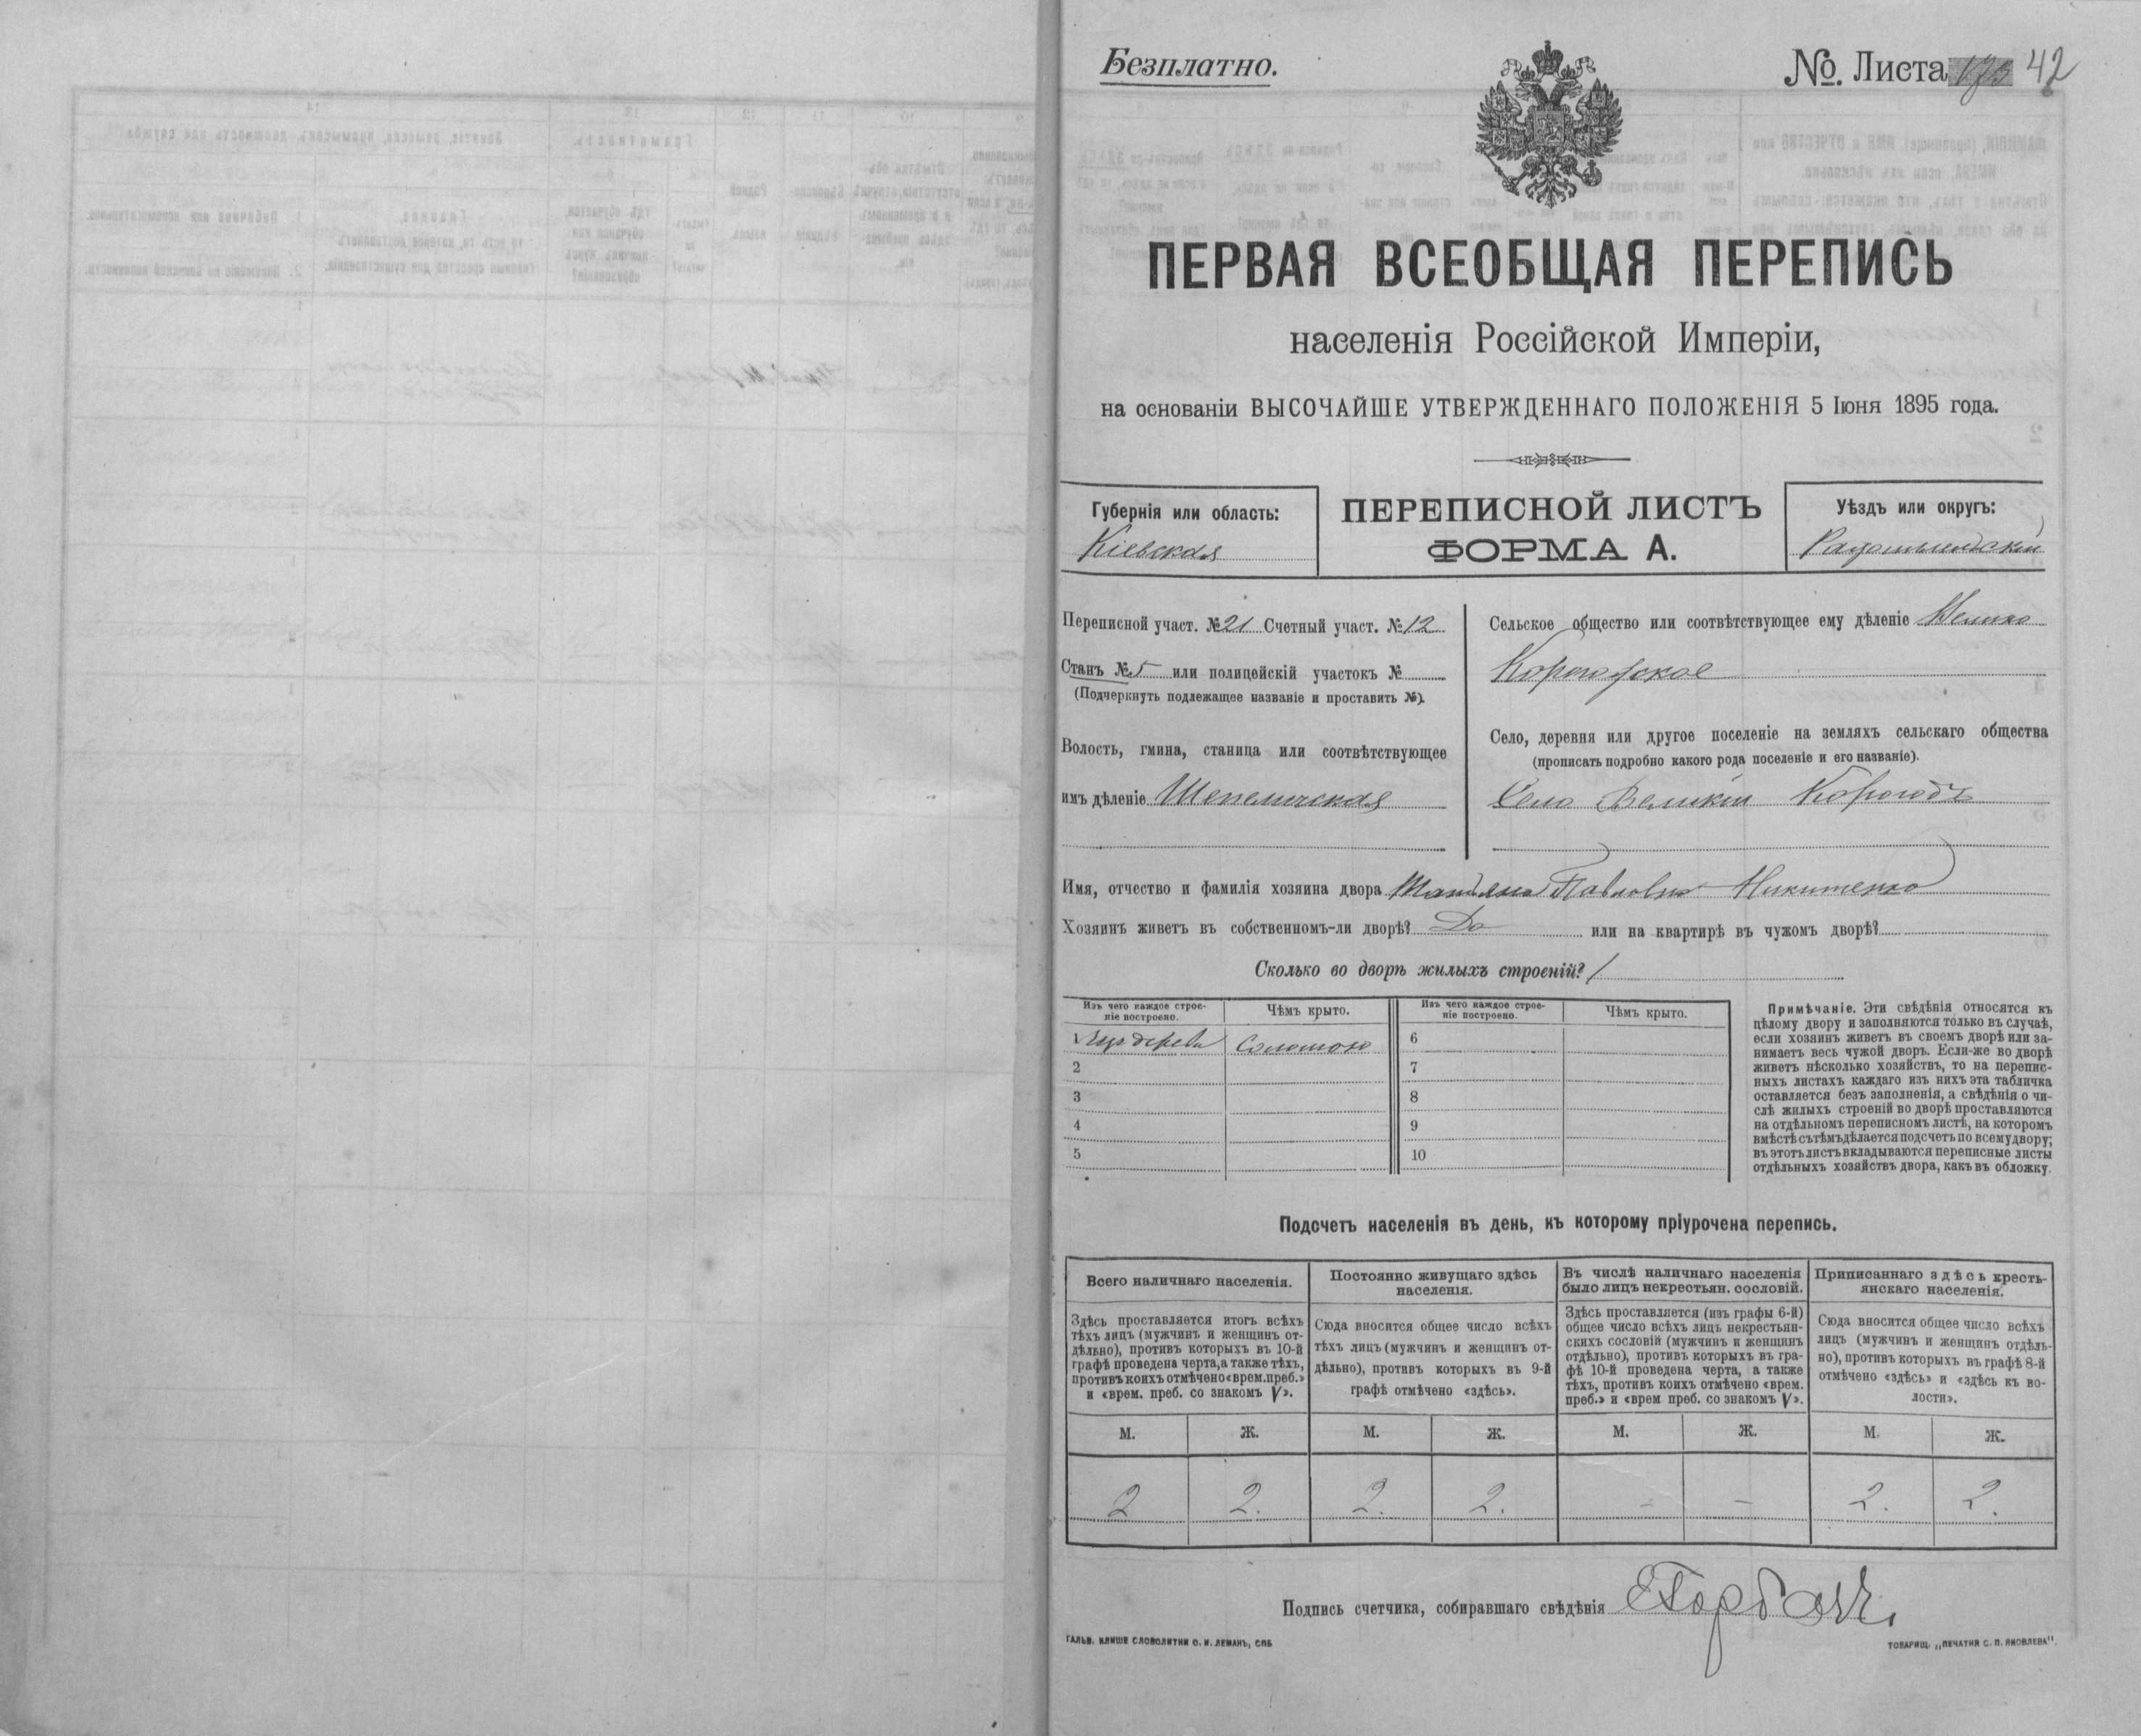 Безплатно.
№ Листа 42
ПЕРВАЯ ВСЕОБЩАЯ ПЕРЕПИСЬ
населенія Россійской Имперіи,
на основаніи ВЫСОЧАЙШЕ УТВЕРЖДЕННАГО ПОЛОЖЕНІЯ 5 Іюня 1895 года.
Губернія или область:
Кіевская
ПЕРЕПИСНОЙ ЛИСТЪ
ФОРМА А.
Уѣздъ или округъ:
Радомысльскій
Переписной участ. № 21 Счетный участ. № 12
Станъ № 5 или полицейскій участокъ №
(Подчеркнуть подлежащее названіе и проставить №).
Волость, гмина, станица или соотвѣтствующее
имъ дѣленіе Шепеличская
Сельское общество или соотвѣтствующее ему дѣленіе Велико
Корогодское
Село, деревня или другое поселеніе на земляхъ сельскаго общества
(прописать подробно какого рода поселеніе и его названіе).
Село Великій Корогодъ
Имя, отчество и фамилія хозяина двора Татьяна Павловна Никитенко
Хозяинъ живетъ въ собственномъ-ли дворѣ? Да или на квартирѣ въ чужомъ дворѣ?
Сколько во дворѣ жилыхъ строеній? 1
Изъ чего каждое строе-
ніе построено.
Чѣмъ крыто.
Изъ чего каждое строе-
ніе построено.
Чѣмъ крыто.
1 Изъ дерева Соломою 6
2 7
3 8
4 9
5 10
Примѣчаніе. Эти свѣдѣнія относятся къ
цѣлому двору и заполняются только въ случаѣ,
если хозяинъ живетъ въ своемъ дворѣ или за-
нимаетъ весь чужой дворъ. Если-же во дворѣ
живетъ нѣсколько хозяйствъ, то на перепис-
ныхъ листахъ каждаго изъ нихъ эта табличка
оставляется безъ заполненія, а свѣдѣнія о чи-
слѣ жилыхъ строеній во дворѣ проставляются
на отдѣльномъ переписномъ листѣ, на которомъ
вмѣстѣ съ тѣмъ дѣлается подсчетъ по всему двору;
въ этотъ листъ вкладываются переписные листы
отдѣльныхъ хозяйствъ двора, какъ въ обложку.
Подсчетъ населенія въ день, къ которому пріурочена перепись.
Всего наличнаго населенія.
Здѣсь проставляется итогъ всѣхъ
тѣхъ лицъ (мужчинъ и женщинъ от-
дѣльно), противъ которыхъ въ 10-й
графѣ проведена черта, а также тѣхъ,
противъ коихъ отмѣчено «врем. преб.»
и «врем. преб. со знакомъ V».
Постоянно живущаго здѣсь
населенія.
Сюда вносится общее число всѣхъ
тѣхъ лицъ (мужчинъ и женщинъ от-
дѣльно), противъ которыхъ въ 9-й
графѣ отмѣчено «здѣсь».
Въ числѣ наличнаго населенія
было лицъ некрестьян. сословій.
Здѣсь проставляется (изъ графы 6-й)
общее число всѣхъ лицъ некрестьян-
скихъ сословій (мужчинъ и женщинъ
отдѣльно), противъ которыхъ въ гра-
фѣ 10-й проведена черта, а также
тѣхъ, противъ коихъ отмѣчено «врем.
преб.» и «врем преб. со знакомъ V».
Приписаннаго здѣсь кресть-
янскаго населенія.
Сюда вносится общее число всѣхъ
лицъ (мужчинъ и женщинъ отдѣль-
но), противъ которыхъ въ графѣ 8-й
отмѣчено «здѣсь» и «здѣсь къ во-
лости».
М. Ж. М. Ж. М. Ж. М. Ж.
2 2. 2. 2. - - 2. 2.
Подпись счетчика, собиравшаго свѣдѣнія
ГАЛЬВ. КЛИШЕ СЛОВОЛИТНИ О. И. ЛЕМАНЪ, СПБ
ТОВАРИЩ. „ПЕЧАТНЯ С. П. ЯКОВЛЕВА“.